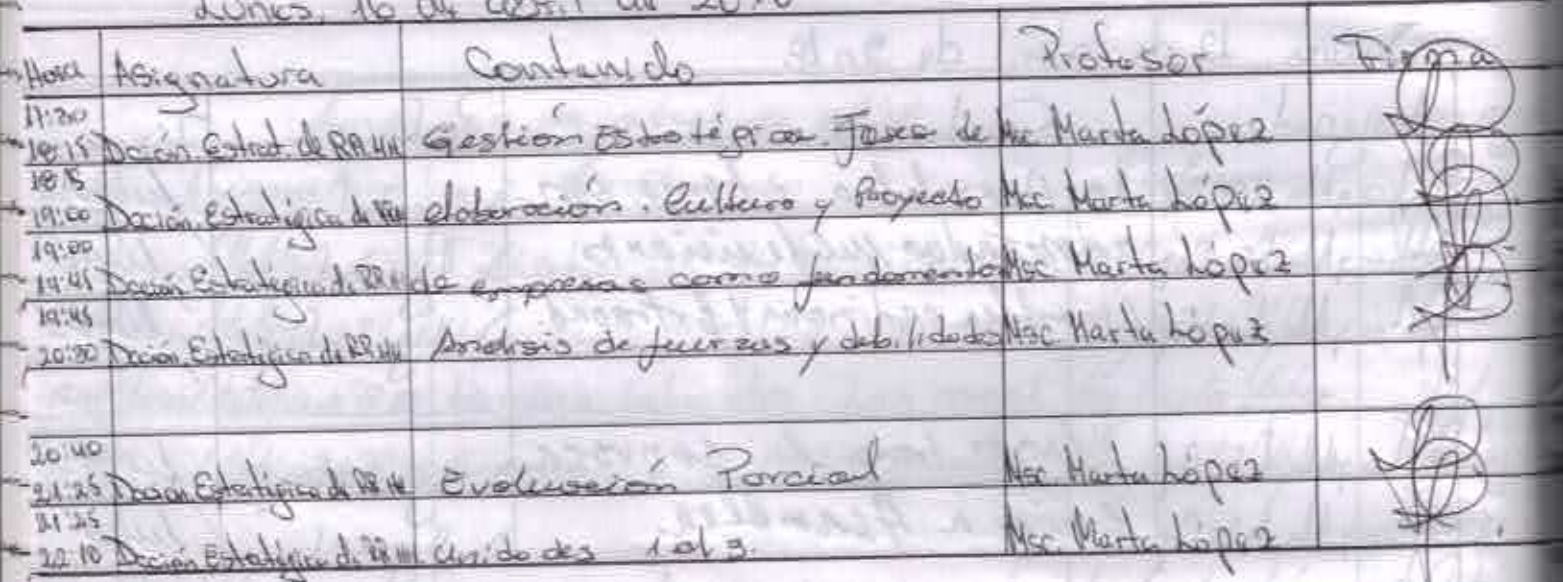 Lunes, 16 de abril de 20
Hora Asignatura Contenido Profesor Firma
18:15 Dcción. Estrat. de RRHH Gestión Estratégica. Fases de Msc Marta López
19:00 Dcción. Estratégica de RRHH elaboración. Cultura y Proyecto Msc Marta López
19:00
19:45 Dcción Estratégica de RRHH de empresas como fundamento Msc Marta López
19:45
20:30 Dcción. Estratégica de RRHH Análisis de fuerzas y debilidades Msc Marta López
20:40
21:25 Dcción Estratégica de RRHH Evaluación Parcial Msc Marta López
21:25
22:10 Dcción Estratégica de RRHH Unidades 1 al 3. Msc Marta López